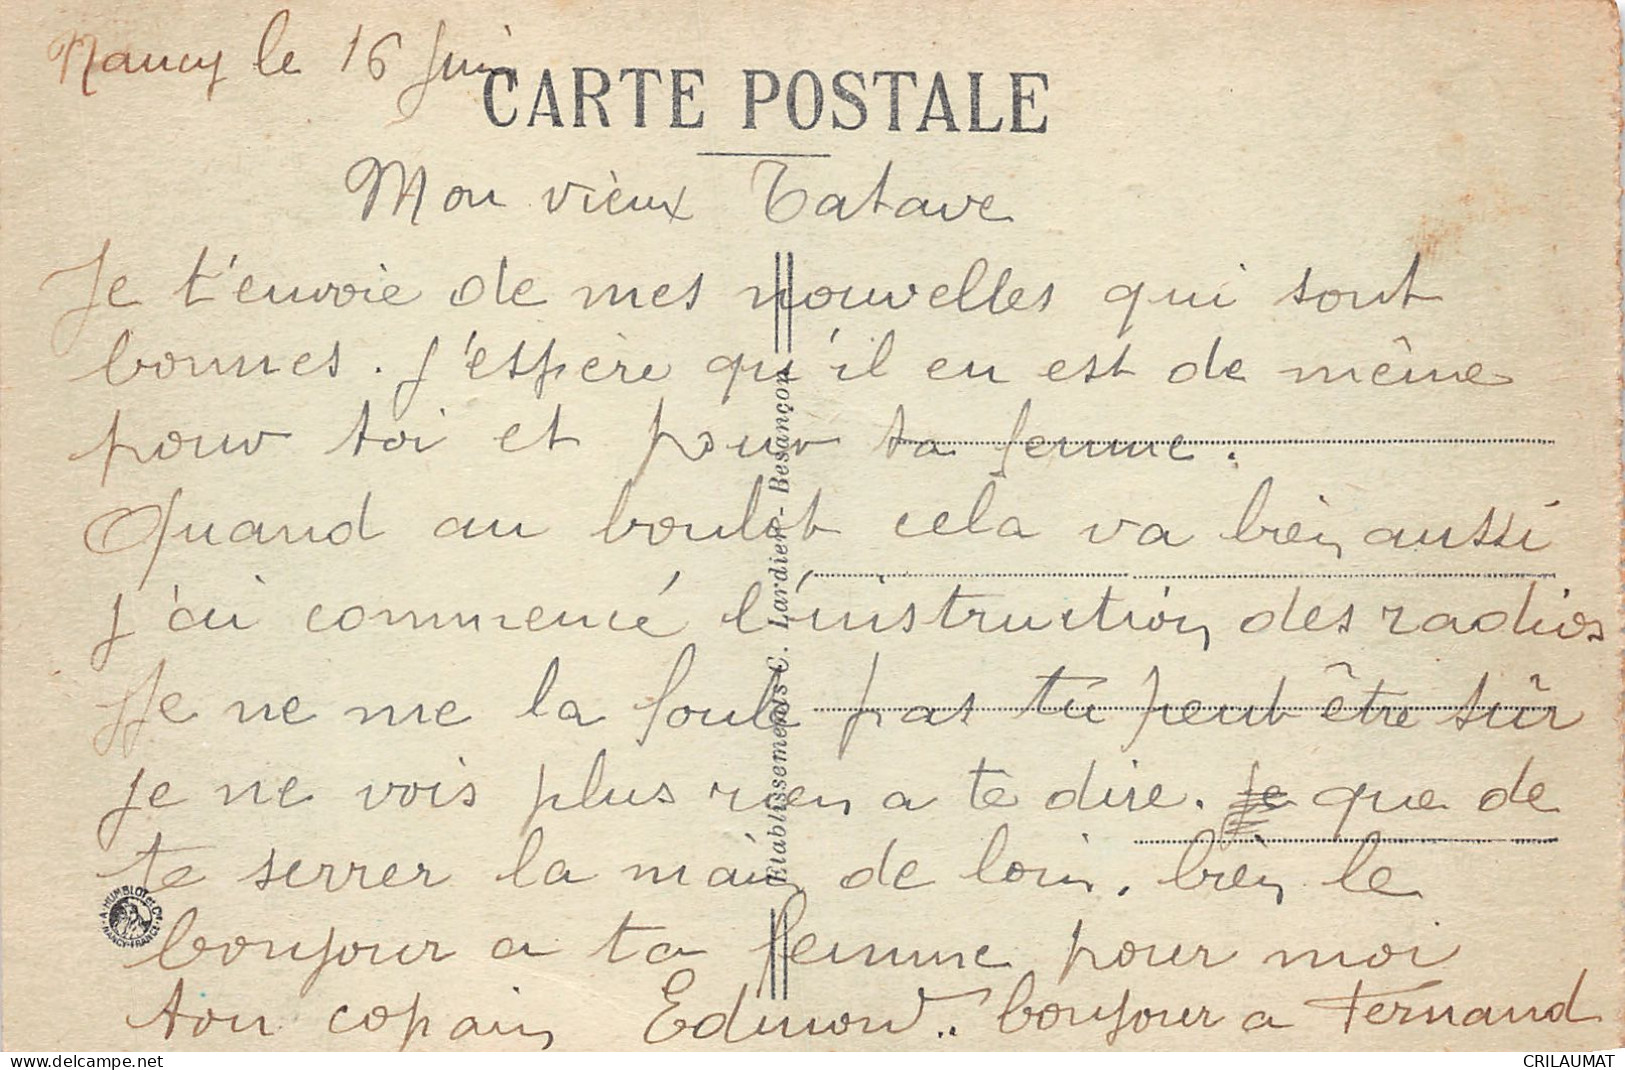 Nancy le 16 juin
CARTE POSTALE
Mon vieux Tatave
Je t'envoie de mes nouvelles qui sont
bonnes. J'espère qu'il en est de même
pour toi et pour ta femme.
Quand au boulot cela va bien aussi
j'ai commencé l'instruction des radios
Je ne me la foule pas tu peut être sûr
je ne vois plus rien a te dire. je que de
te serrer la main de loin. bien le
bonjour a ta femme pour moi
ton copain Edmond.. bonjour a Fernand
Etablissements C. Lardier - Besançon
A. HUMBLOT et Cie
NANCY-FRANCE
CRILAUMAT